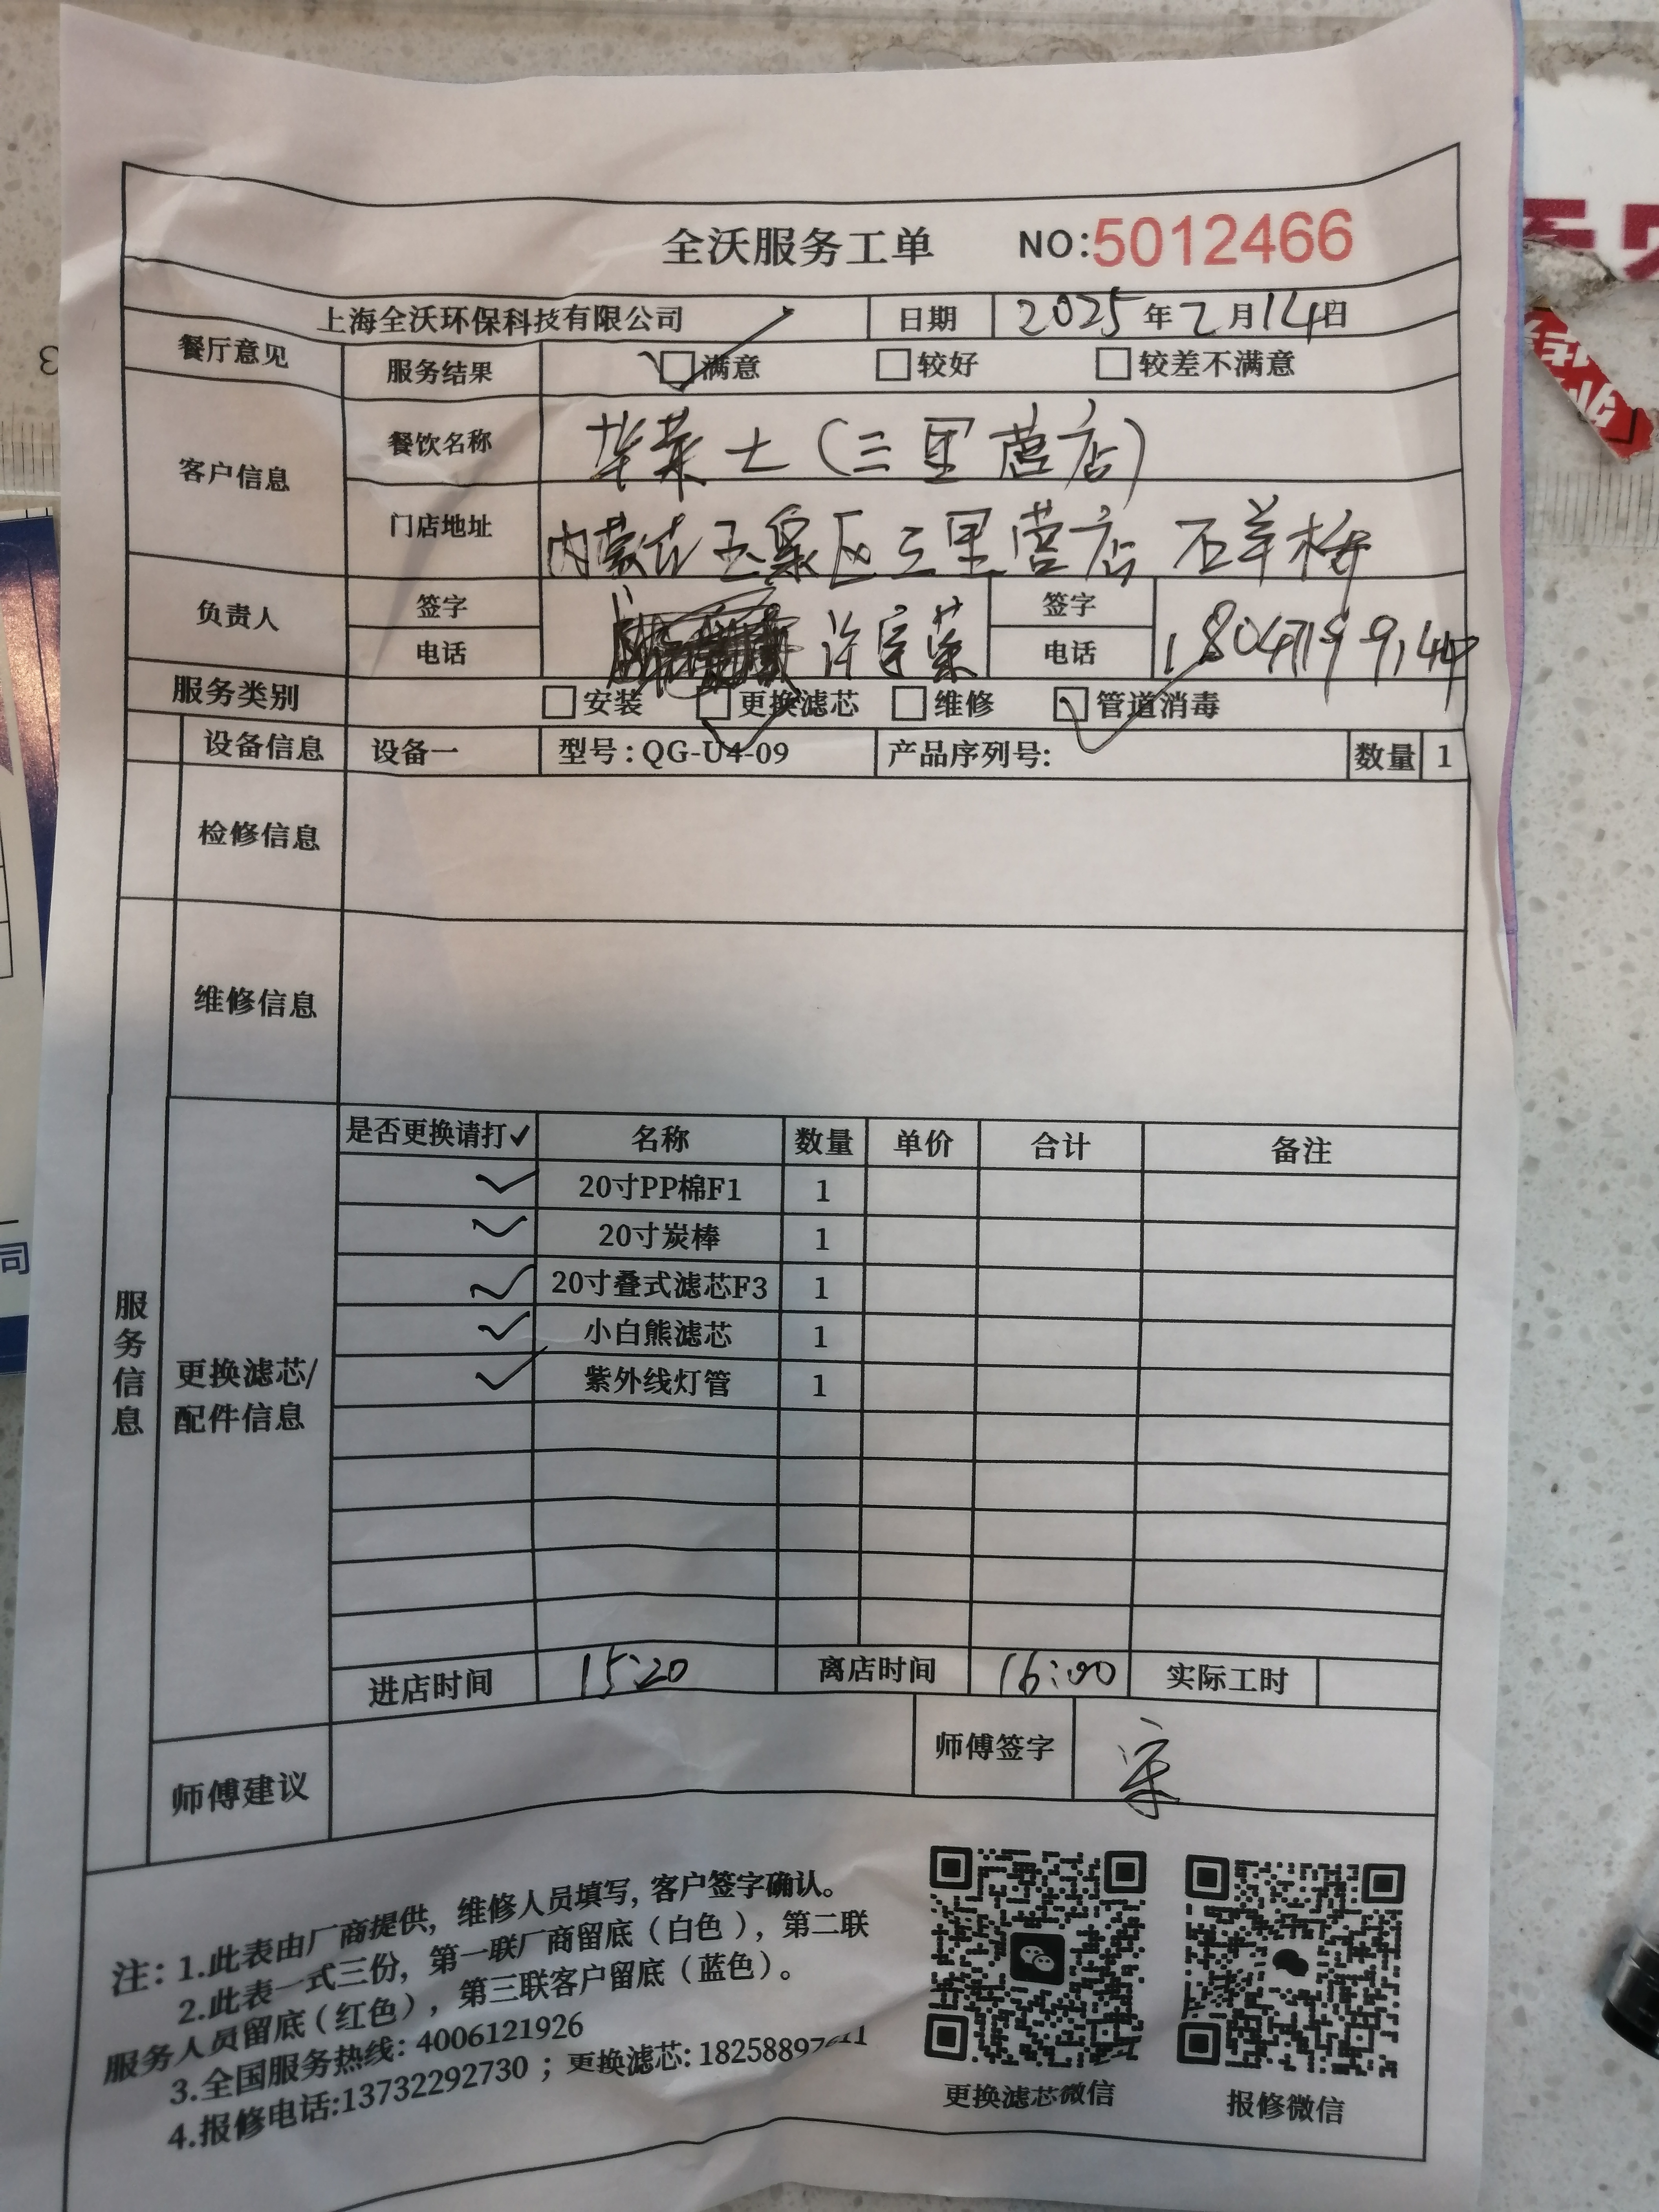 全沃服务工单 NO:5012466
上海全沃环保科技有限公司 日期 2025年2月14日
餐厅意见 服务结果 满意 较好 较差不满意
客户信息 餐饮名称 华莱士(三里营店)
门店地址 内蒙古玉泉区三里营店 石羊桥
负责人 签字 许宇荣 签字
电话 电话
服务类别 安装 更换滤芯 维修 管道消毒
设备信息 设备一 型号:QG-U4-09 产品序列号: 数量 1
检修信息
维修信息
服务信息
更换滤芯/配件信息
是否更换请打✓ 名称 数量 单价 合计 备注
✓ 20寸PP棉F1 1
✓ 20寸炭棒 1
✓ 20寸叠式滤芯F3 1
✓ 小白熊滤芯 1
✓ 紫外线灯管 1
进店时间 15:20 离店时间 16:00 实际工时
师傅建议 师傅签字 宋
注:1.此表由厂商提供,维修人员填写,客户签字确认。
2.此表一式三份,第一联厂商留底(白色),第二联
服务人员留底(红色),第三联客户留底(蓝色)。
3.全国服务热线:4006121926
4.报修电话:13732292730;更换滤芯:
更换滤芯微信 报修微信